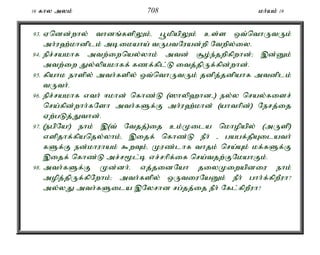 16 கால அலம் 708 மர்யம் 19
93. ஏனென்றால் வானங்களிலும், பூமியிலும் உள்ள ஒவ்வொருவரும் அர்ரஹ்மானிடம் அடிமையாய் வருபவரேயன்றி வேறில்லை.
94. நிச்சயமாக அவற்றையெல்லாம் அவன் சூழ்ந்தறிகிறான்; இன்னும் அவற்றை துல்லியமாகக் கணக்கிட்டு வைத்திருக்கின்றான்.
95. கியாம நாளில் அவர்களில் ஒவ்வொருவரும் தனித்தனியாக அவனிடம் வருவர்.
96. நிச்சயமாக எவர் ஈமான் கொண்டு (ஸாலிஹான;) நல்ல செயல்களைச் செய்கின்றார்களோ அவர்களுக்கு அர்ரஹ்மான் (யாவரின்) நேசத்தை ஏற்படுத்துவான்.
97. (நபியே!) நாம் இ(வ் வேதத்)தை உம்முடைய மொழியில் (அருளி) எளிதாக்கியதெல்லாம், இதைக் கொண்டு நீர் - பயபக்தியுடையவர் களுக்கு நன்மாராயம் கூறவும், முரண்டாக வாதம் செய்யும் மக்களுக்கு இதைக் கொண்டு அச்சமூட்டி எச்சரிக்கை செய்வதற்குமேயாகும்.
98. அவர்களுக்கு முன்னர், எத்தனையோ தலைமுறையினரை நாம் அழித்திருக்கிறோம்; அவர்களில் ஒருவரையேனும் நீர் பார்க்கிறீரா? அல்லது அவர்களுடைய இலேசான சப்தத்தை நீர் கேட்கிறீரா?